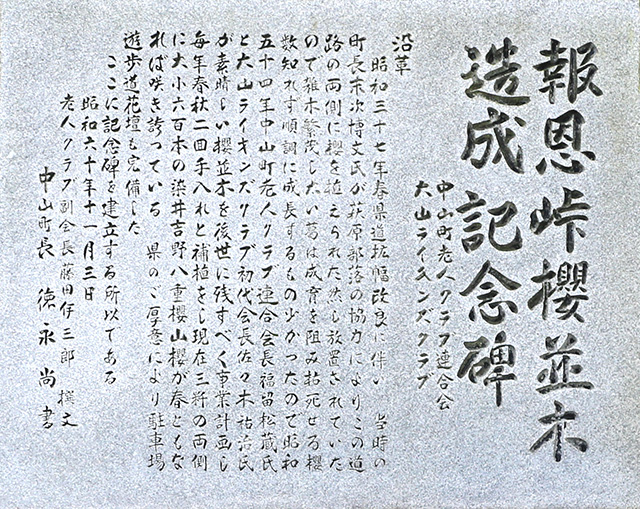 報恩峠櫻並木
造成記念碑
中山町老人クラブ連合会
大山ライオンズクラブ
沿革
昭和三十七年春県道拡幅改良に伴い 当時の
町長末次博文氏が萩原部落の協力によりこの道
路の両側に櫻を植えられた然し放置されていた
ので雑木繁茂し大い葛は成育を阻み枯死せる櫻
数知れず順調に成長するもの少かったので昭和
五十四年中山町老人クラブ連合会長福留松蔵氏
と大山ライオンズクラブ初代会長佐々木祐治氏
が素晴しい櫻並木を後世に残すべく事業計画し
毎年春秋二回手入れと補植をし現在三粁の両側
に大小六百本の染井吉野八重櫻山櫻が春ともな
れば咲き誇っている 県のご厚意により駐車場
遊歩道花壇も完備した
ここに記念碑を建立する所以である
昭和六十年十一月三日
老人クラブ副会長藤田伊三郎 撰文
中山町長 徳永 尚 書